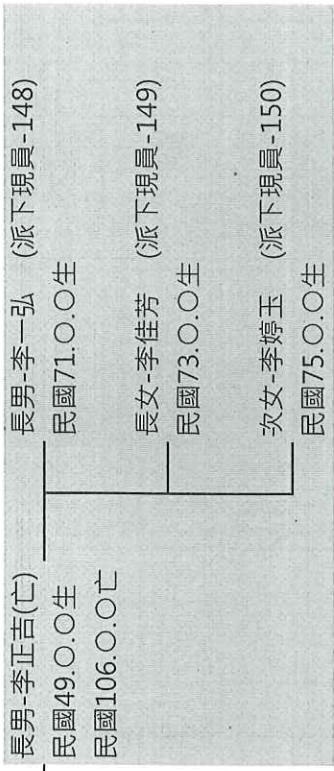 長男-李正吉(亡)
民國49.○.○生
民國106.○.○亡
長男-李一弘 (派下現員-148)
民國71.○.○生
長女-李佳芳 (派下現員-149)
民國73.○.○生
次女-李婷玉 (派下現員-150)
民國75.○.○生